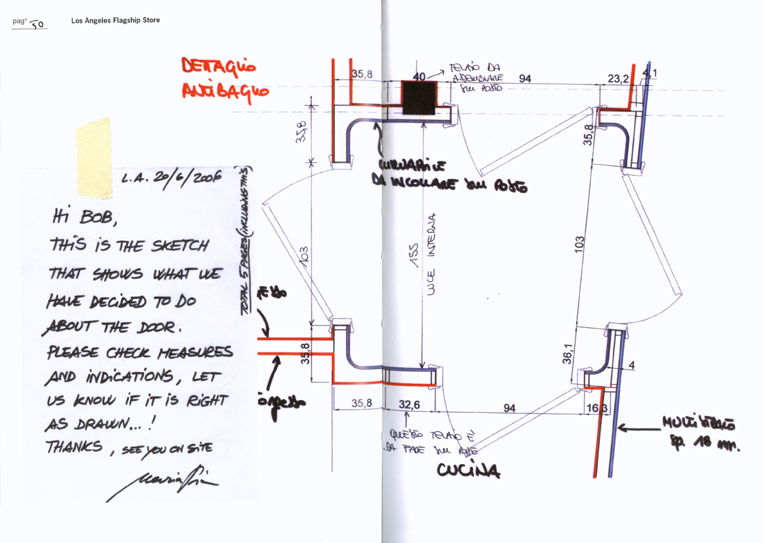 pag° 50
Los Angeles Flagship Store
DETTAGLIO
ANTIBAGNO
35,8
40
TELAIO DA
ASSEMBLARE
IN POSTO
94
23,2
4,1
35,8
35,8
CURVABILE
DA INCOLLARE IN POSTO
L.A. 20/6/2006
Hi BOB,
THIS IS THE SKETCH
THAT SHOWS WHAT WE
HAVE DECIDED TO DO
ABOUT THE DOOR.
PLEASE CHECK MEASURES
AND INDICATIONS, LET
US KNOW IF IT IS RIGHT
AS DRAWN...!
THANKS, SEE YOU ON SITE
TOTAL 5 PAGES (INCLUDING THIS)
103
155
LUCE INTERNA
103
35,8
36,1
4
35,8
32,6
94
16,3
QUESTO TELAIO E'
DA FARE IN POSTO
CUCINA
MULTISTRATO
sp. 18 mm.